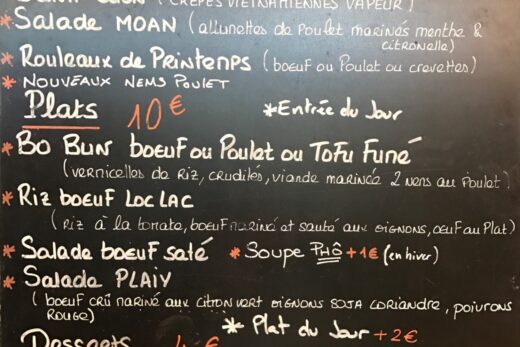 (CRÊPES VIETNAMIENNES VAPEUR)
*Salade MOAN (allunettes de Poulet marinés menthe &
citronelle)
*Rouleaux de Printemps (boeuf ou Poulet ou crevettes)
*NOUVEAUX NEMS POULET
Plats 10€ *Entrée du Jour
*BO BUN boeuf ou Poulet ou Tofu Fumé
(vernicelles de Riz, crudités, viande marinée 2 nems au Poulet)
*Riz boeuf LOC LAC
(Riz à la tomate, boeuf mariné et sauté aux oignons, oeuf au Plat)
*Salade boeuf saté *Soupe PHÔ +1€ (en hiver)
*Salade PLAIY
(boeuf crû mariné aux citron vert oignons soja coriandre, poivrons
rouge)
*Plat du Jour +2€
Desserts